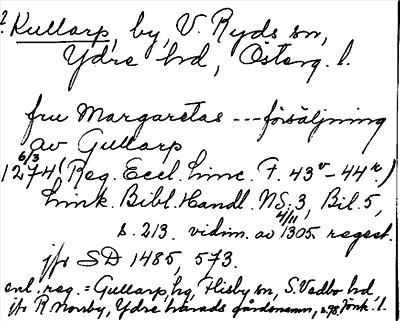 ? Kullarp, by, V. Ryds sn,
Ydre hd, Österg. l.
fru Margaretas --- försäljning
av Gullarp
6/3
1274 (Reg. Eccl. Linc. F. 43v - 44r.)
Link. Bibl. Handl. NS: 3, Bil. 5,
s. 213. vidim. av 4/11 1305. regest.
jfr SD 1485, 573.
enl. reg. = Gullarp, hg, Flisby sn, S. Vedbo hd,
jfr R Norrby, Ydre härads gårdsnamn, s. 98. Jönk. l.